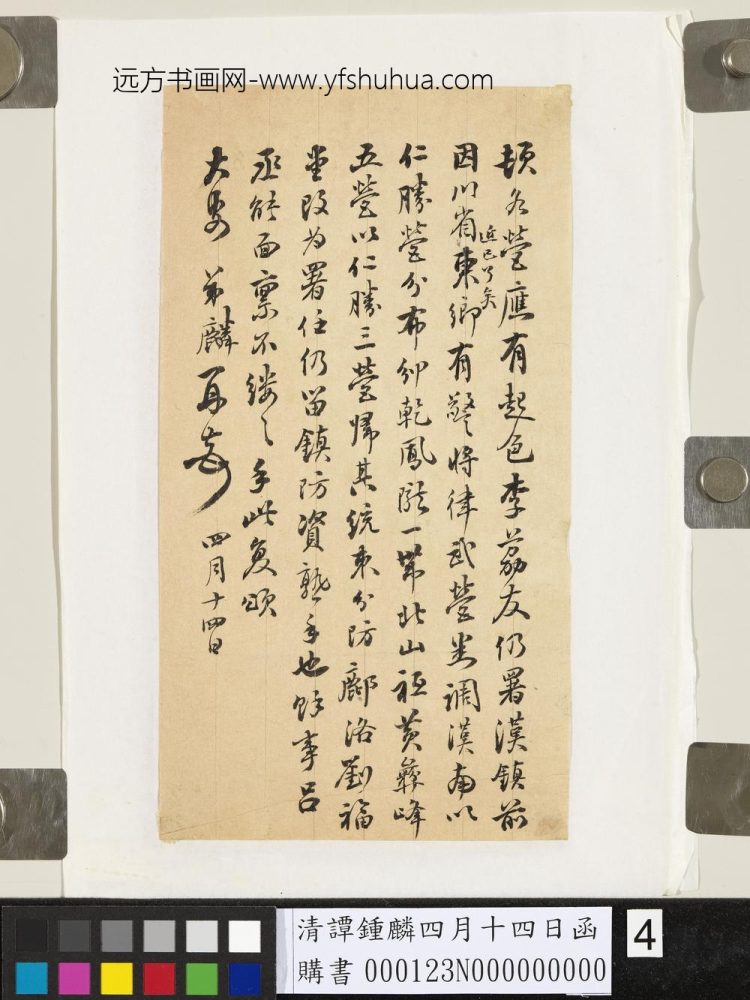 远方书画网-www.yfshuhua.com
頓各營應有起色李荔友仍署漢鎮前
因川省東鄉有警將律武營悉調漢南以
近已了矣
仁勝營分布邠乾鳳隴一帶北山祇黃彝峰
五營以仁勝三營歸其統束分防鄜洛劉福
堂改為署任仍留鎮防資熟手也餘事呂
丞能面稟不縷縷手此复頌
大安 弟麟再頓 四月十四日
清譚鍾麟四月十四日函
購書 000123N000000000
4